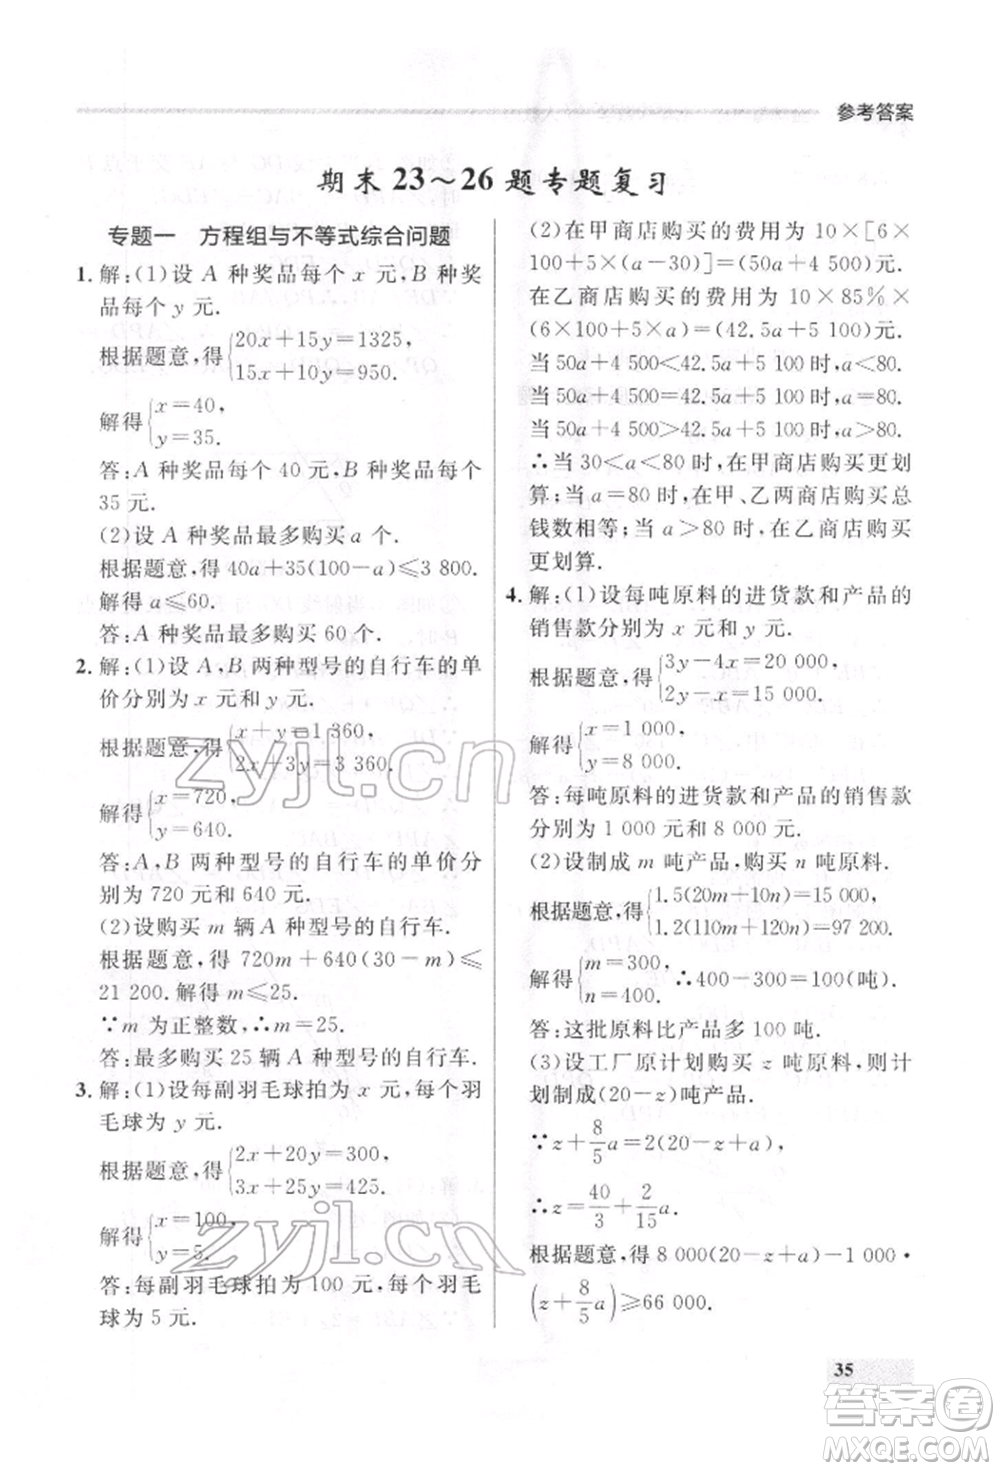 参考答案
期末 23～26 题专题复习
专题一　方程组与不等式综合问题
1. 解:(1)设 A 种奖品每个 x 元,B 种奖
品每个 y 元.
根据题意,得{20x+15y=1325,
15x+10y=950.
解得{x=40,
y=35.
答:A 种奖品每个 40 元,B 种奖品每个
35 元.
(2)设 A 种奖品最多购买 a 个.
根据题意,得 40a+35(100-a)≤3 800.
解得 a≤60.
答:A 种奖品最多购买 60 个.
2. 解:(1)设 A,B 两种型号的自行车的单
价分别为 x 元和 y 元.
根据题意,得{x+y=1 360,
2x+3y=3 360.
解得{x=720,
y=640.
答:A,B 两种型号的自行车的单价分
别为 720 元和 640 元.
(2)设购买 m 辆 A 型号的自行车.
根据题意,得 720m+640(30-m)≤
21 200. 解得 m≤25.
∵m 为正整数,∴m=25.
答:最多购买 25 辆 A 种型号的自行车.
3. 解:(1)设每副羽毛球拍为 x 元,每个羽
毛球为 y 元.
根据题意,得{2x+20y=300,
3x+25y=425.
解得{x=100,
y=5.
答:每副羽毛球拍为 100 元,每个羽毛
球为 5 元.
(2)在甲商店购买的费用为 10×[6×
100+5×(a-30)]=(50a+4 500)元.
在乙商店购买的费用为 10×85%×
(6×100+5a)=(42.5a+5 100)元.
当 50a+4 500<42.5a+5 100 时,a<80.
当 50a+4 500=42.5a+5 100 时,a=80.
当 50a+4 500>42.5a+5 100 时,a>80.
∴当 30<a<80 时,在甲商店购买更划
算;当 a=80 时,在甲、乙两商店购买总
钱数相等;当 a>80 时,在乙商店购买
更划算.
4. 解:(1)设每吨原料的进货款和产品的
销售款分别为 x 元和 y 元.
根据题意,得{3y-4x=20 000,
2y-x=15 000.
解得{x=1 000,
y=8 000.
答:每吨原料的进货款和产品的销售款
分别为 1 000 元和 8 000 元.
(2)设制成 m 吨产品,购买 n 吨原料.
根据题意,得{1.5(20m+10n)=15 000,
1.2(110m+120n)=97 200.
解得{m=300,
n=400. ∴400-300=100(吨).
答:这批原料比产品多 100 吨.
(3)设工厂原计划购买 z 吨原料,则计
划制成(20-z)吨产品.
∵z+8/5a=2(20-z+a),
∴z=40/3+2/15a.
根据题意,得 8 000(20-z+a)-1 000·
(z+8/5a)≥66 000.
35
zyjl.cn
zyjl.cn
答案圈
MXQE.COM